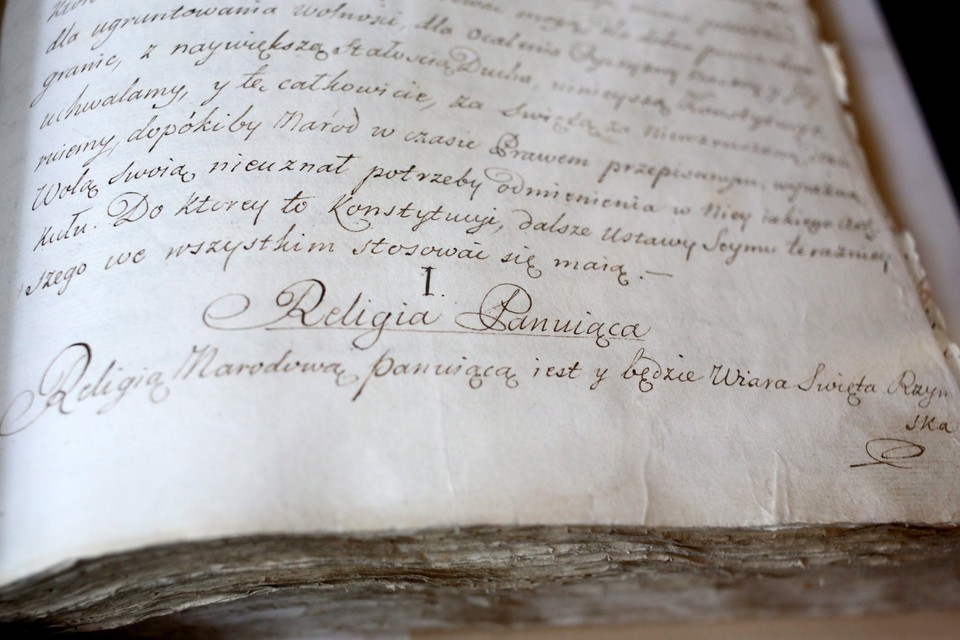 dla ugruntowania wolności, dla ocalenia Oyczyzny Naszey y Jey
granic, z naywiększą stałością Ducha, ninieyszą Konstytucyę
uchwalamy, y tę całkowicie, za Swiętą, za Niewzruszoną, dekla
ruiemy, dopókiby Naród w czasie Prawem przepisanym, wyraźną
Wolą swoią nieuznał potrzeby odmienienia w Niey iakiego Arty
kułu. Do ktorey to Konstytucyi, dalsze Ustawy Seymu teraźniey
szego we wszystkim stosować się maią. —
I.
Religia Panuiąca
Religią Narodową panuiącą iest y będzie Wiara Swięta Rzym
ska